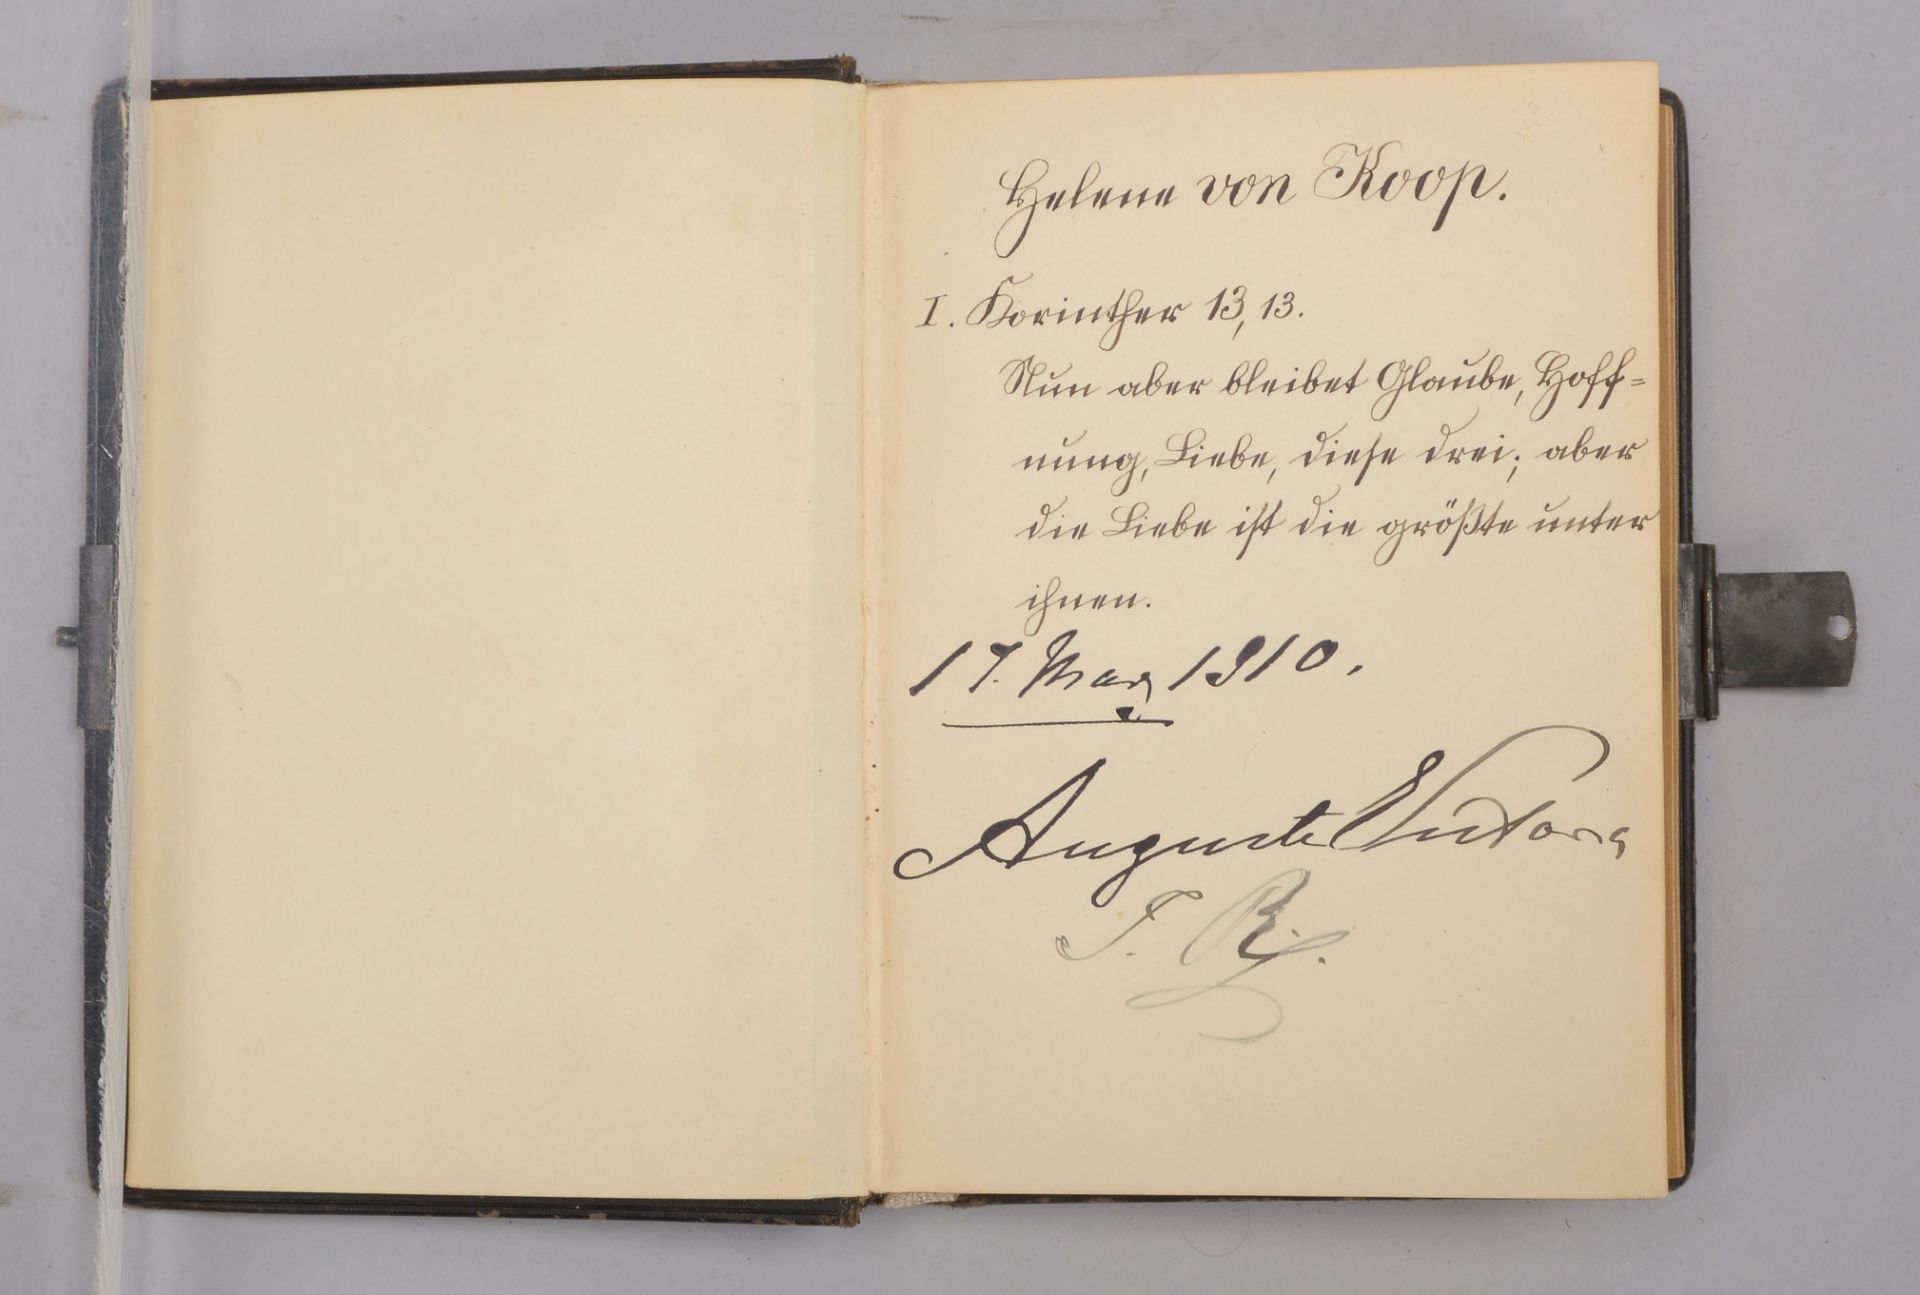 Helene von Koop.
I. Korinther 13, 13.
Nun aber bleibet Glaube, Hoff=
nung, Liebe, diese drei; aber
die Liebe ist die größte unter
ihnen.
17. März 1910.
Auguste Victoria
I. R.